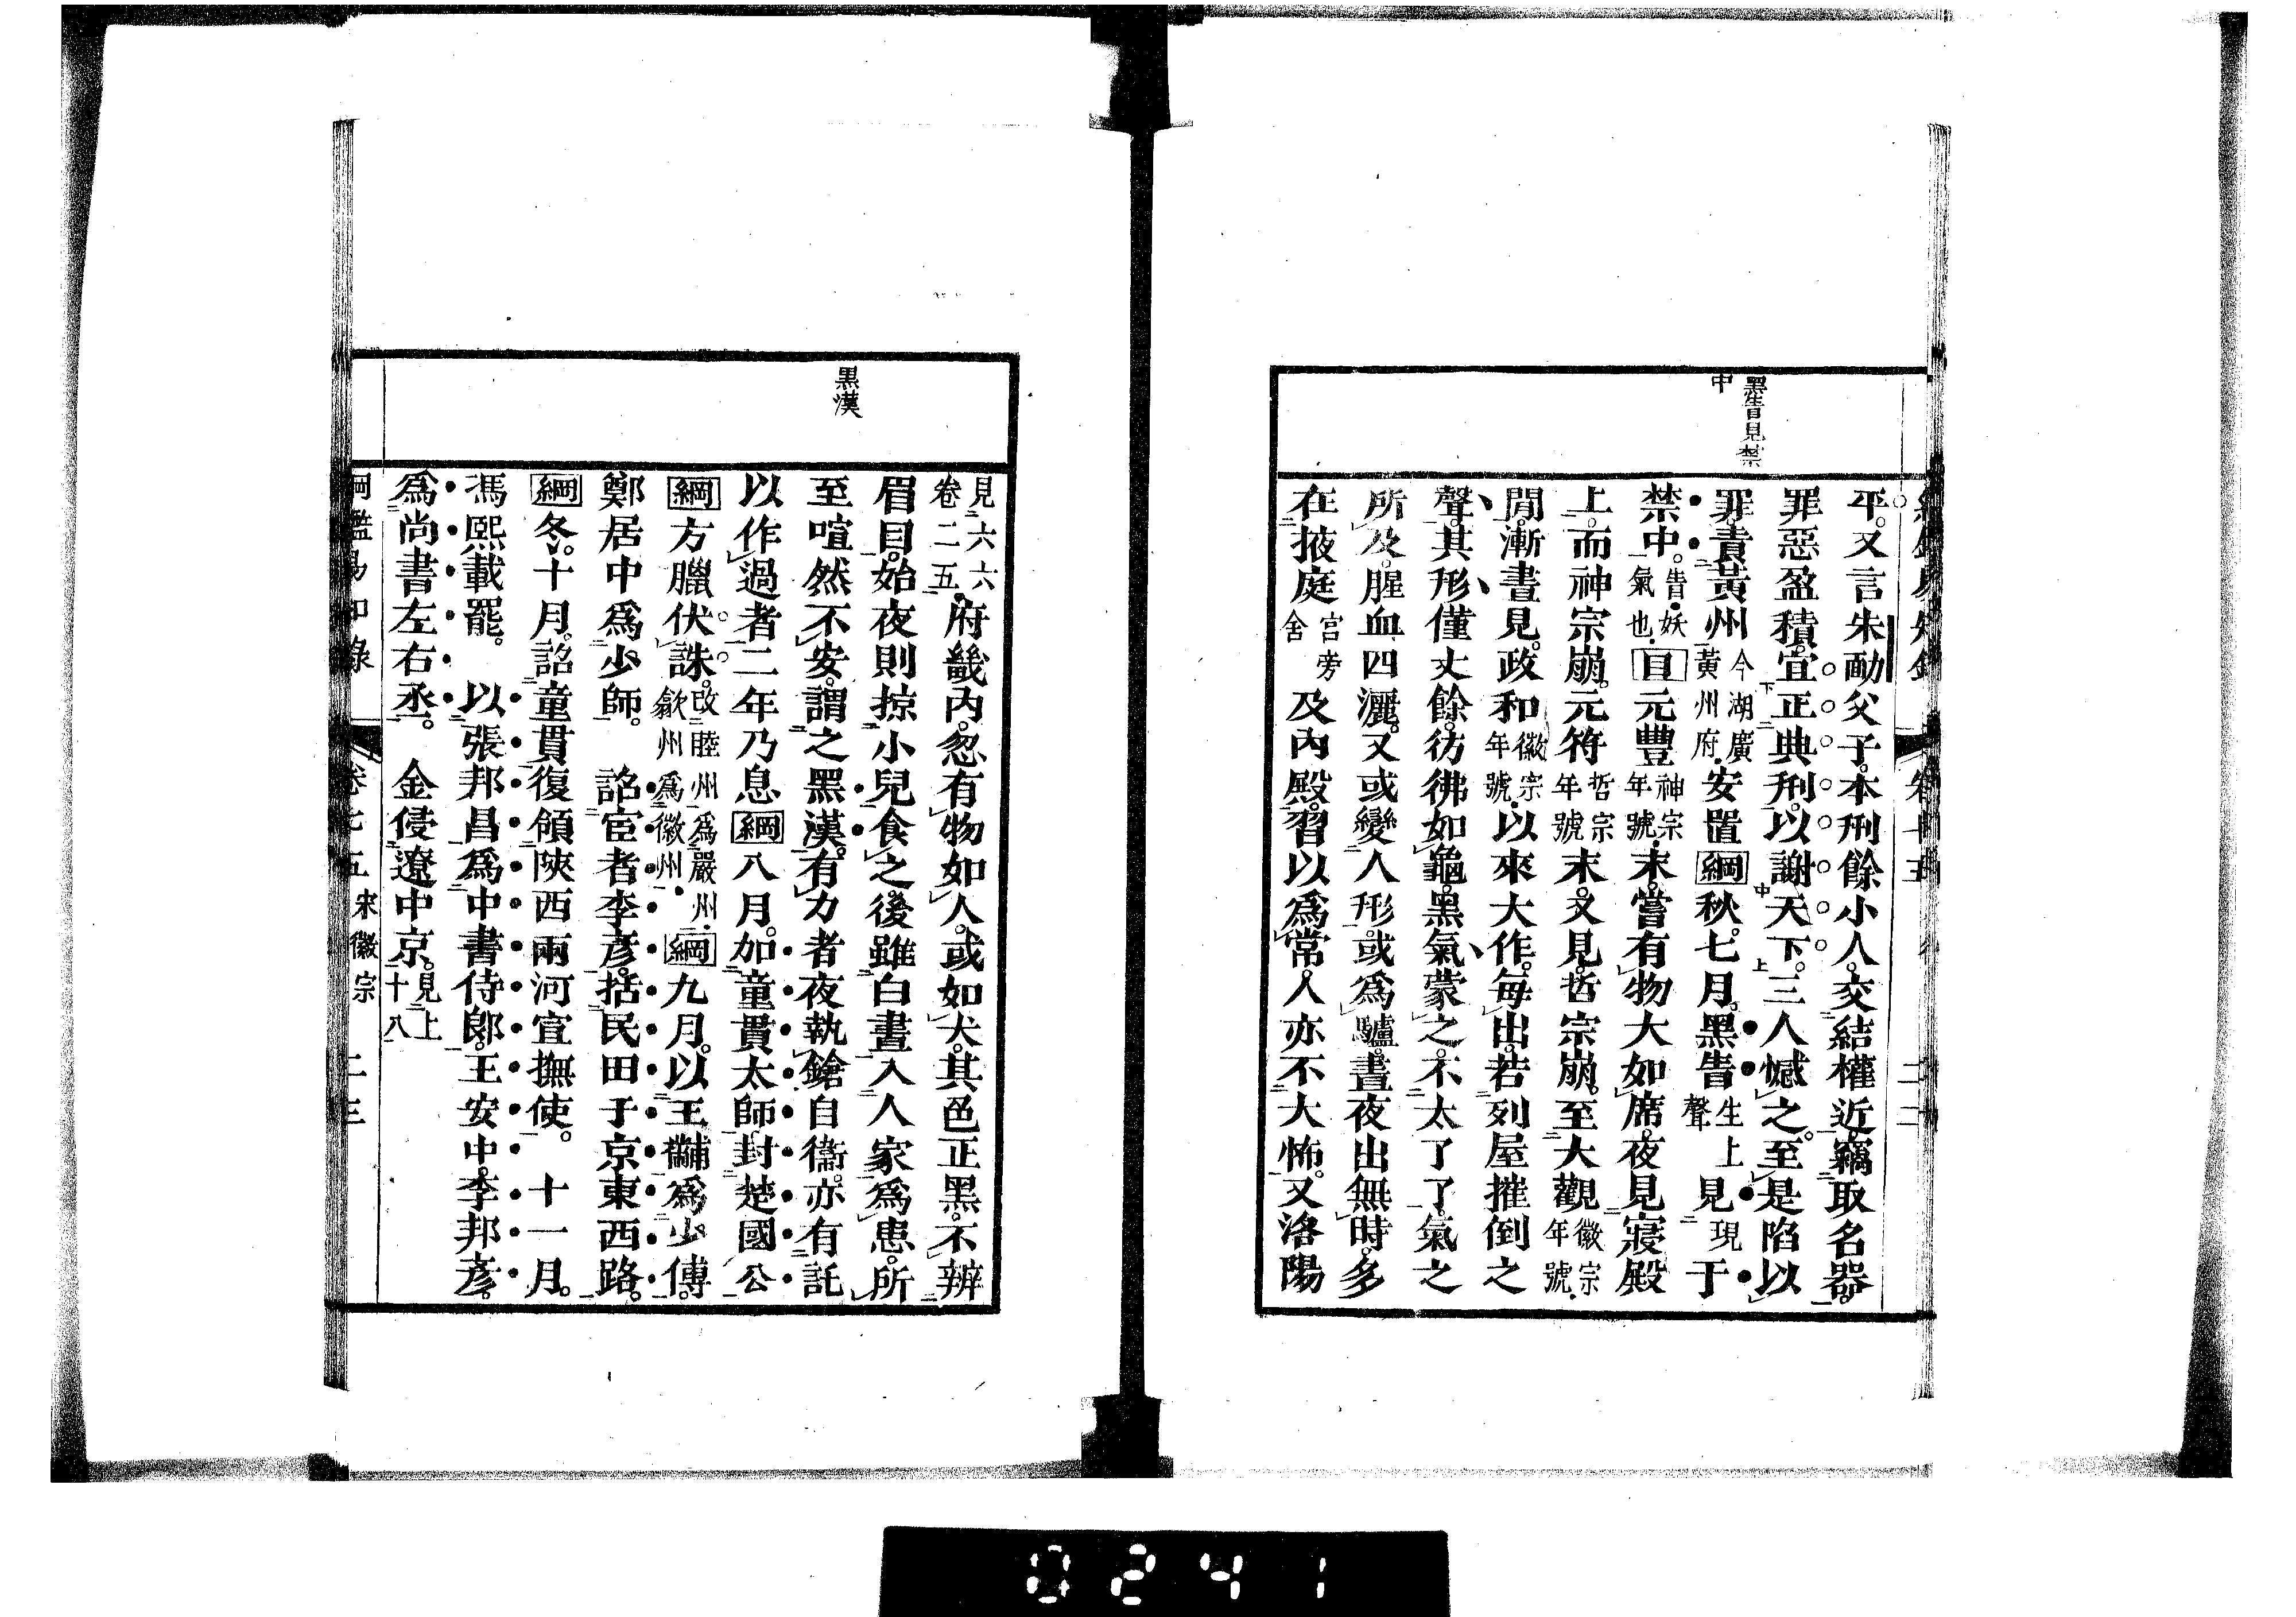 黑眚見禁
中
平。又言朱勔父子。本刑餘小人。交結權近。竊取名器。
罪惡盈積。宜正典刑。以謝天下。三人憾之。至是陷以
罪。責黃州今湖廣黃州府。安置綱秋。七月。黑眚生上聲見現于
禁中。眚妖氣也。目元豐神宗年號。末。嘗有物大如席。夜見寢殿
上。而神宗崩。元符哲宗年號末。又見。哲宗崩。至大觀徽宗年號。
閒。漸晝見。政和徽宗年號。以來大作。每出。若列屋摧倒之
聲。其形僅丈餘。彷彿如龜。黑氣蒙之。不大了了。氣之
所及。腥血四灑。又或變人形。或為驢。晝夜出無時。多
在掖庭宮旁舍及內殿。習以為常。人亦不大怖。又洛陽
卷七十五
二二
黑漢
見六六卷二五。府畿內。忽有物如人。或如犬。其色正黑。不辨
眉目。始夜則掠小兒食之。後雖白晝入人家為患。所
至喧然不安。謂之黑漢。有力者夜執鎗自衞。亦有託
以作過者。二年乃息綱八月。加童貫太師封楚國公
綱方臘伏誅。改睦州為嚴州。歙州為徽州。綱九月。以王黼為少傅。
鄭居中為少師。 詔宦者李彥。括民田于京東西路。
綱冬。十月。詔童貫復領陝西兩河宣撫使。 十一月。
馮熙載罷。 以張邦昌為中書侍郎。王安中。李邦彥。
為尚書左右丞。 金侵遼中京。見上十八
綱鑑易知錄 卷七五 宋徽宗 二三
0241